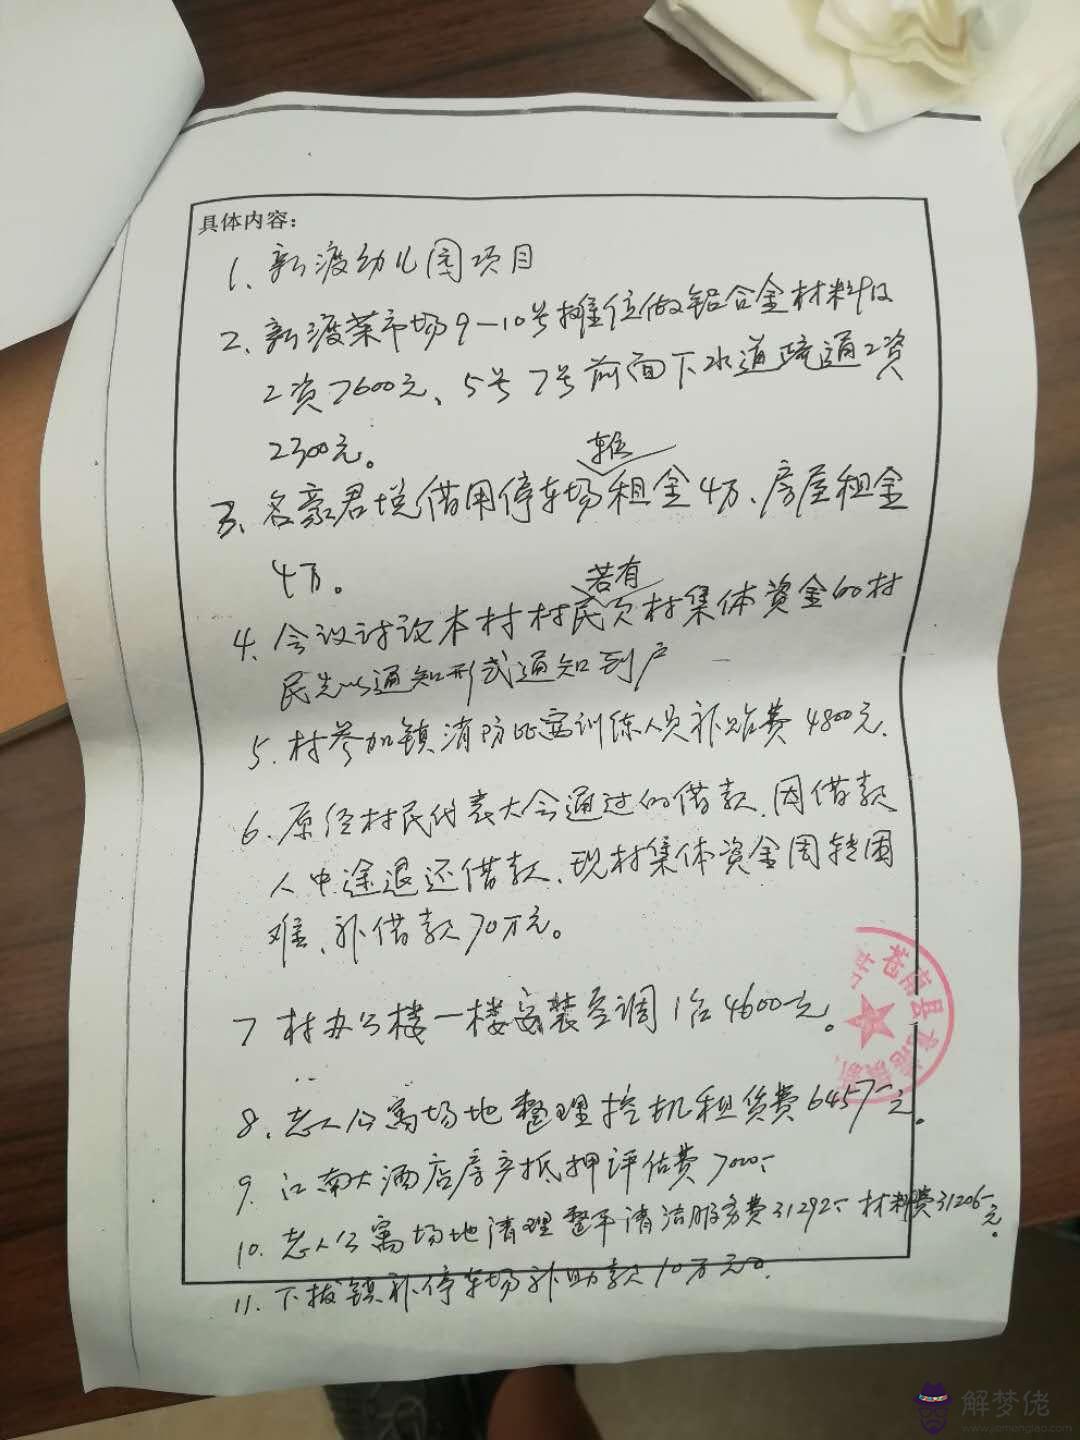 具体内容：
1、新渡幼儿园项目
2、新渡菜市场9—10号摊位做铝合金材料及
工资7600元、5号7号前面下水道疏通工资
2300元。
车位
3、名豪君悦借用停车场租金4万、房屋租金
4万。
若有
4、会议讨论本村村民欠村集体资金的村
民先以通知形式通知到户
5、村参加镇消防比赛训练人员补贴费4800元、
6、原经村民代表大会通过的借款、因借款
人中途退还借款、现村集体资金周转困
难、补借款70万元。
7 村办公楼一楼安装空调1台4600元。
8、老人公寓场地整理挖机租赁费6457元。
9、江南大酒店房产抵押评估费7000
10、老人公寓场地清理整平清洁服务费31292 材料费31206元。
11、下拔镇补停车场补助款10万元。
苍南县
解梦佬
www.jiemenglao.com